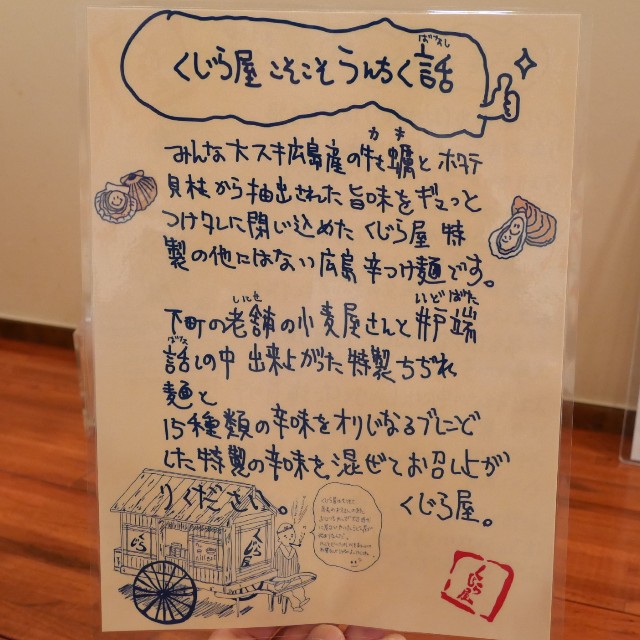 くじら屋 こそこそ うんちく 話
ばなし
みんな大スキ広島産の牡蠣とホタテ
カキ
貝柱から抽出された旨味をギュっと
つけタレに閉じ込めた くじら屋 特
製の他にはない広島 辛つけ麺です。
下町の老舗の小麦屋さんと井戸端
しにせ
いどばた
話しの中 出来上がった 特製 ちぢれ
ばな
麺と
15種類の辛味をオリじなるブレンド
した特製の辛味を混ぜてお召し上が
りください。
くじら屋。
くじら
くじら屋
くじら屋